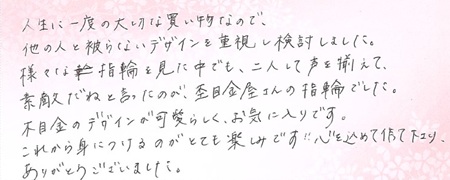 人生に一度の大切な買い物なので、
他の人と被らないデザインを重視し検討しました。
様々な指輪を見た中でも、二人して声を揃えて、
素敵だねと言ったのが、杢目金屋さんの指輪でした。
木目金のデザインが可愛らしく、お気に入りです。
これから身につけるのがとても楽しみです!!心を込めて作て下さり、
ありがとうございました。